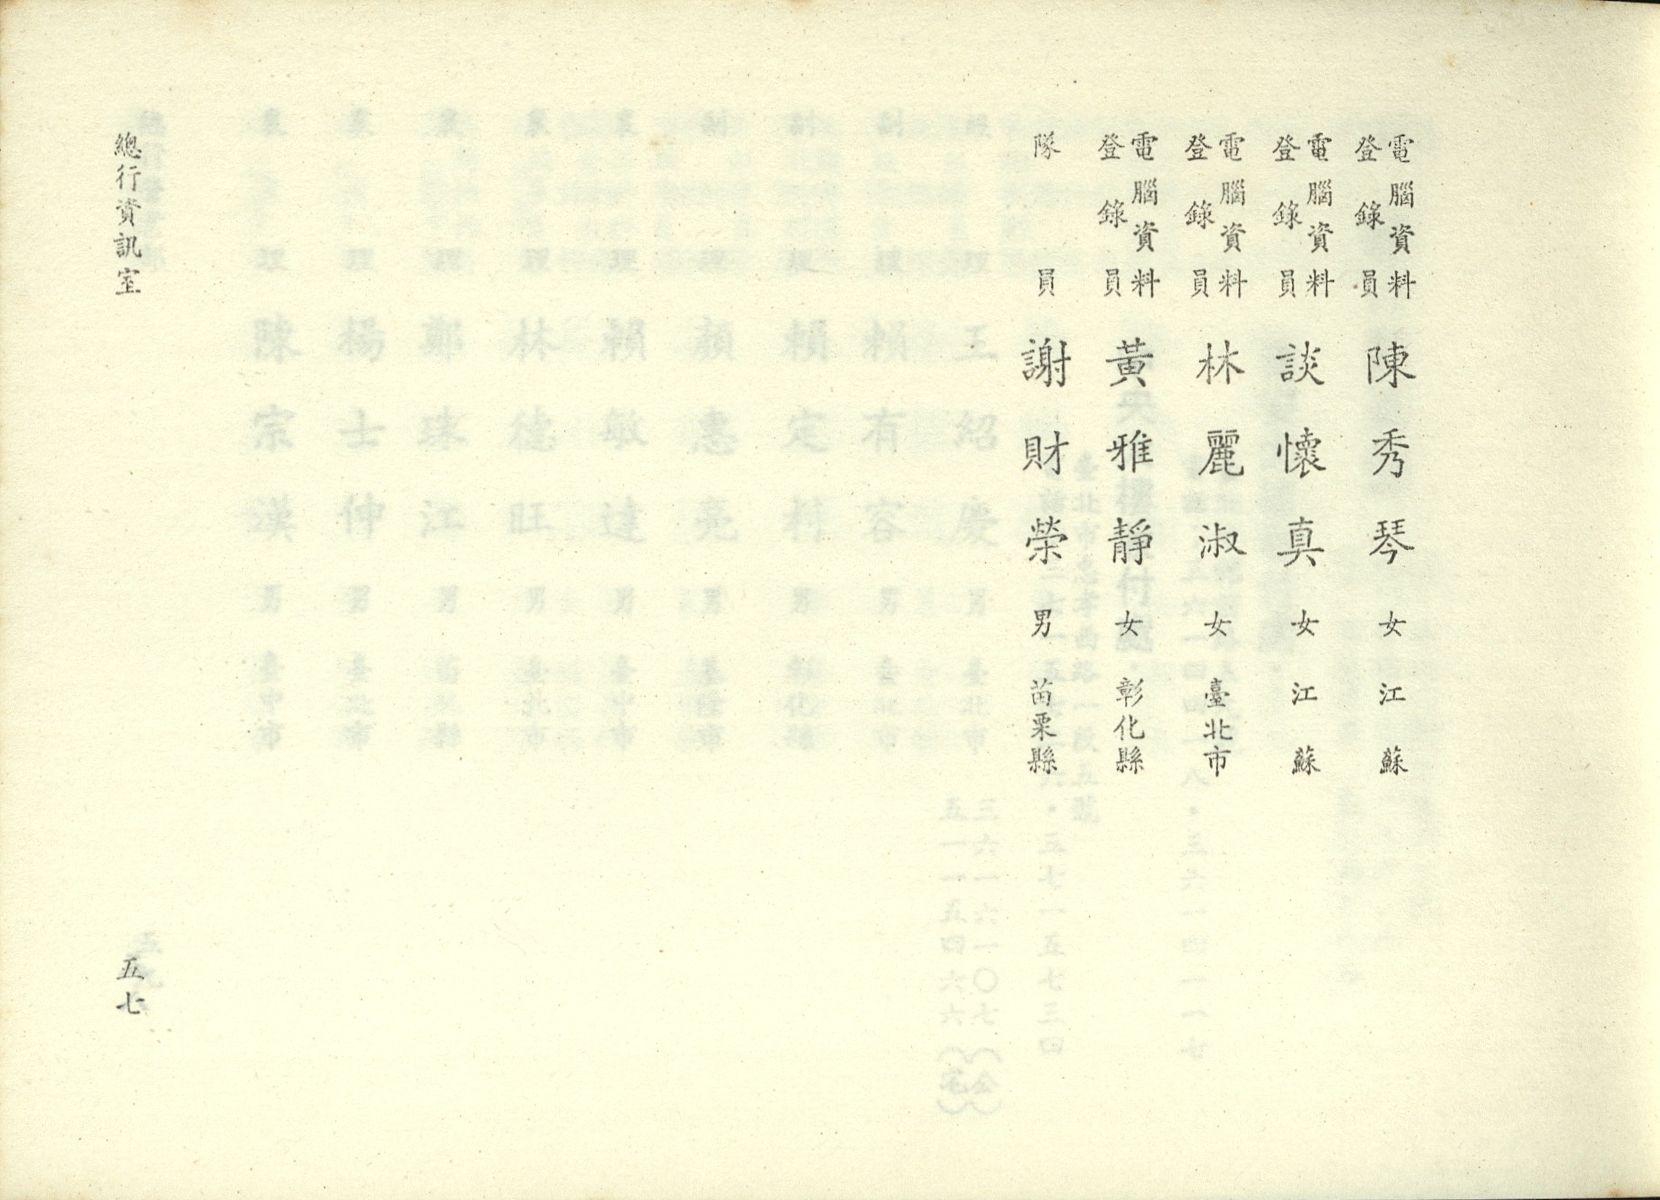 電腦資料登錄員 陳秀琴 女 江蘇
電腦資料登錄員 談懷真 女 江蘇
電腦資料登錄員 林麗淑 女 臺北市
電腦資料登錄員 黃雅靜 女 彰化縣
隊員 謝財榮 男 苗栗縣
總行資訊室
五七